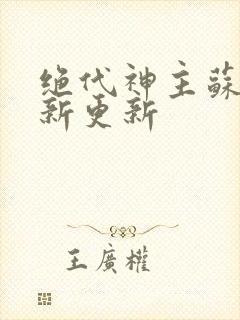 绝代神主蘇
新更新
王廣權